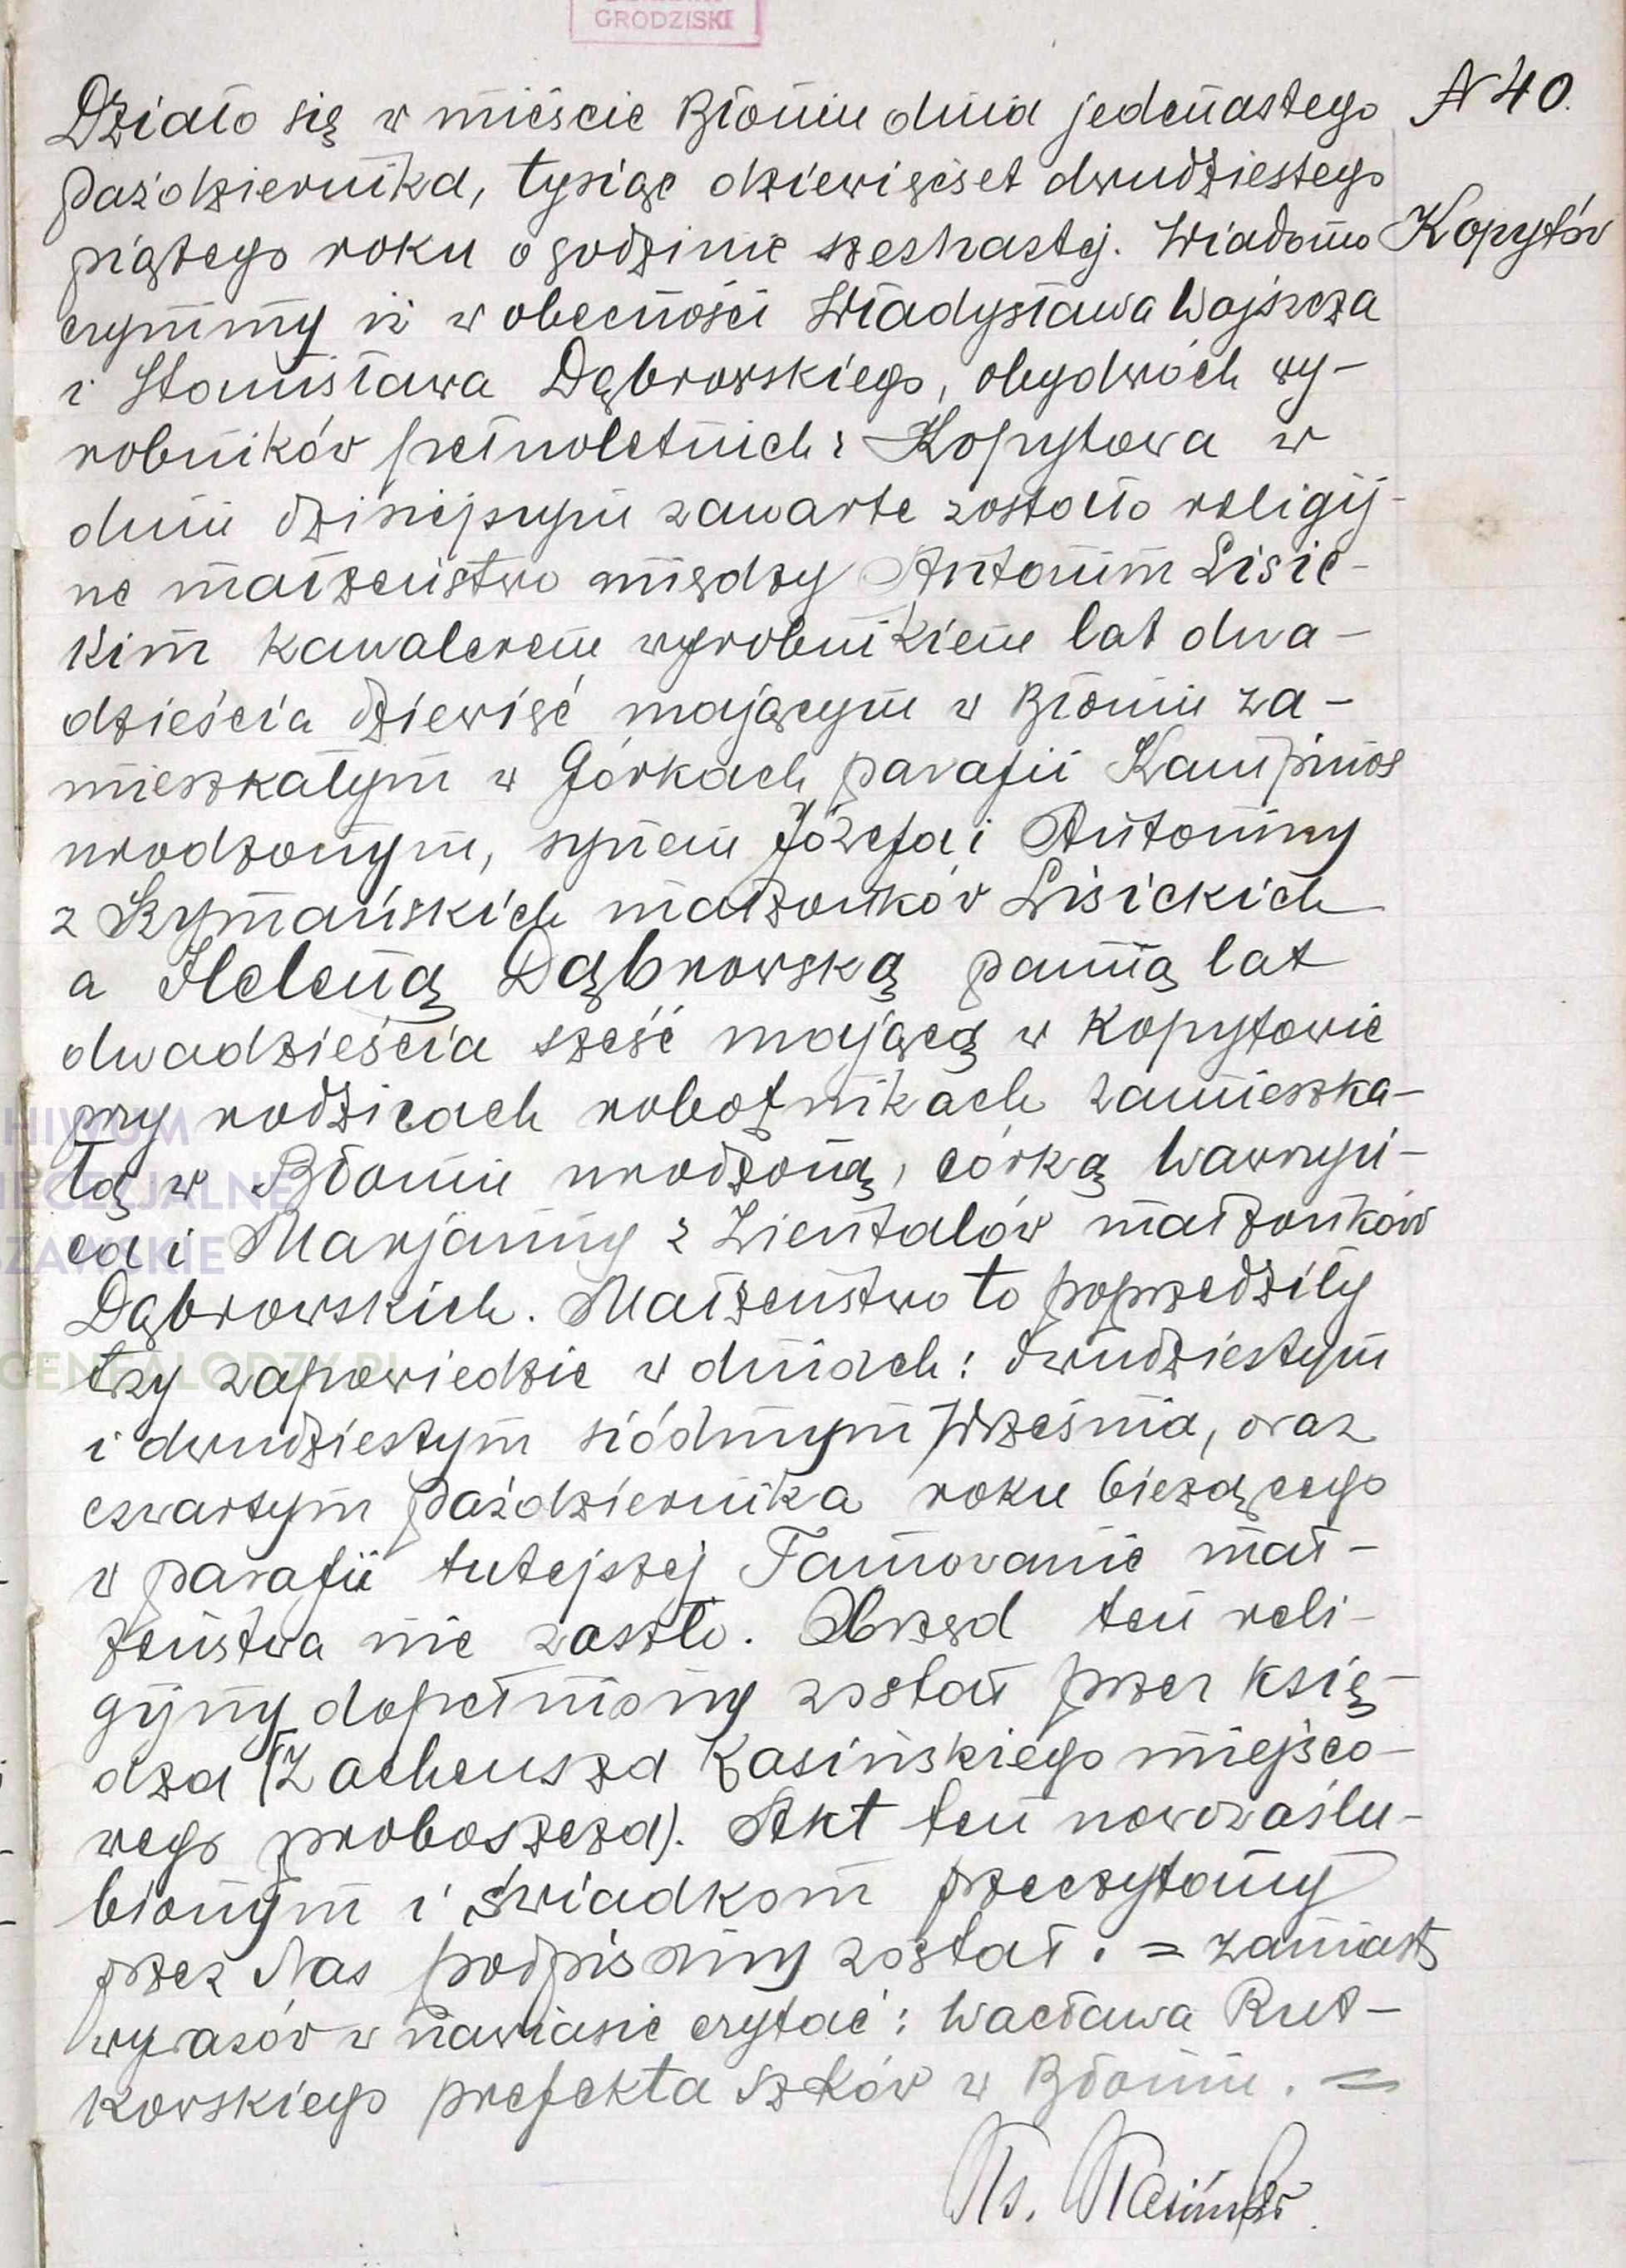 GRODZISKI
N 40.
Kopytów
Działo się w mieście Błoniu dnia jedenastego
października, tysiąc dziewięćset dwudziestego
piątego roku o godzinie szesnastej. Wiadomo
czynimy iż w obecności Władysława Wojszcza
i Stanisława Dąbrowskiego, obydwóch wy-
robników pełnoletnich z Kopytowa w
dniu dzisiejszym zawarte zostało religij-
ne małżeństwo między Antonim Lisic-
kim kawalerem wyrobnikiem lat dwa-
dzieścia dziewięć mającym w Błoniu za-
mieszkałym w Górkach parafii Kampinos
urodzonym, synem Józefa i Antoniny
z Szymańskich małżonków Lisickich
a Heleną Dąbrowską panną lat
dwadzieścia sześć mającą w Kopytowie
przy rodzicach robotnikach zamieszka-
łą w Błoniu urodzoną, córką Wawrzyń-
ca i Marjanny z Zientalów małżonków
Dąbrowskich. Małżeństwo to poprzedziły
trzy zapowiedzie w dniach: dwudziestym
i dwudziestym siódmym Września, oraz
czwartym października roku bieżącego
w parafii tutejszej Tamowanie mał-
żeństwa nie zaszło. Obrzęd ten reli-
gijny dopełniony został przez księ-
dza (Zacheusza Kasińskiego miejsco-
wego proboszcza). Akt ten nowozaślu-
bionym i świadkom przeczytany
przez Nas podpisany został. = zamiast
wyrazów w nawiasie czytać: Wacława Rut-
kowskiego prefekta szkół w Błoniu. =
Ks. Kasiński